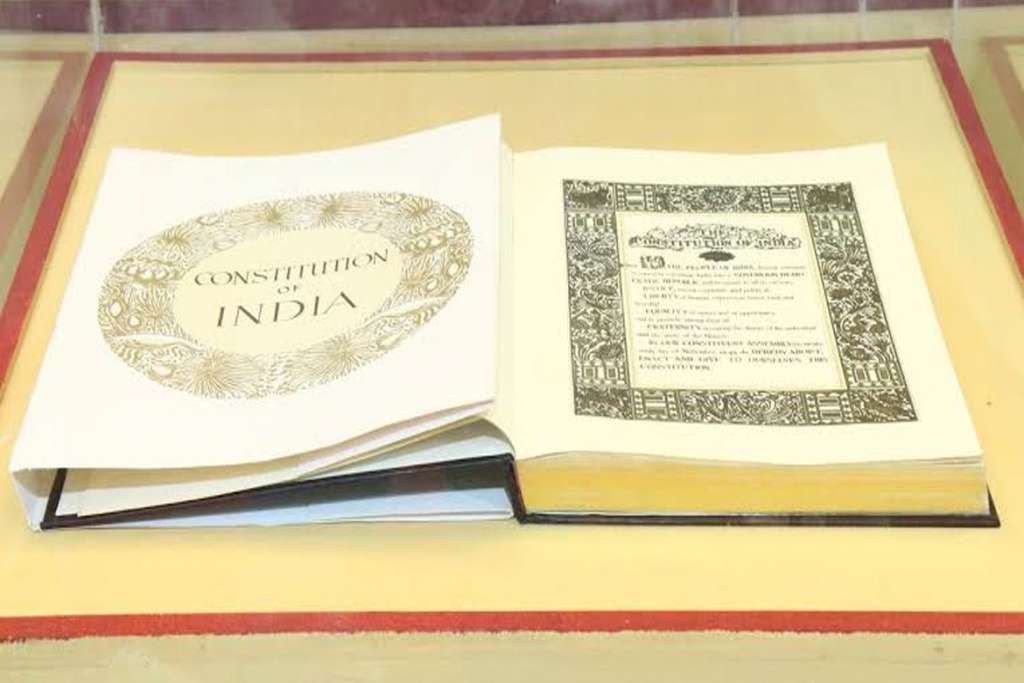 CONSTITUTION
OF
INDIA
THE
CONSTITUTION OF INDIA
WE, THE PEOPLE OF INDIA, having solemnly
resolved to constitute India into a SOVEREIGN DEMO-
CRATIC REPUBLIC and to secure to all its citizens:
JUSTICE, social, economic and political;
LIBERTY of thought, expression, belief, faith and
worship;
EQUALITY of status and of opportunity;
and to promote among them all
FRATERNITY assuring the dignity of the individual
and the unity of the Nation;
IN OUR CONSTITUENT ASSEMBLY this twenty-
sixth day of November, do HEREBY ADOPT,
ENACT AND GIVE TO OURSELVES THIS
CONSTITUTION.